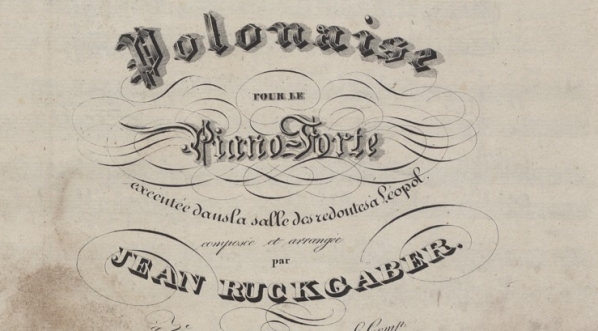 Polonaise
POUR LE
Piano-Forte
executée dans la salle des redoutes à Léopol.
composée et arrangée
par
JEAN RUCKGABER.